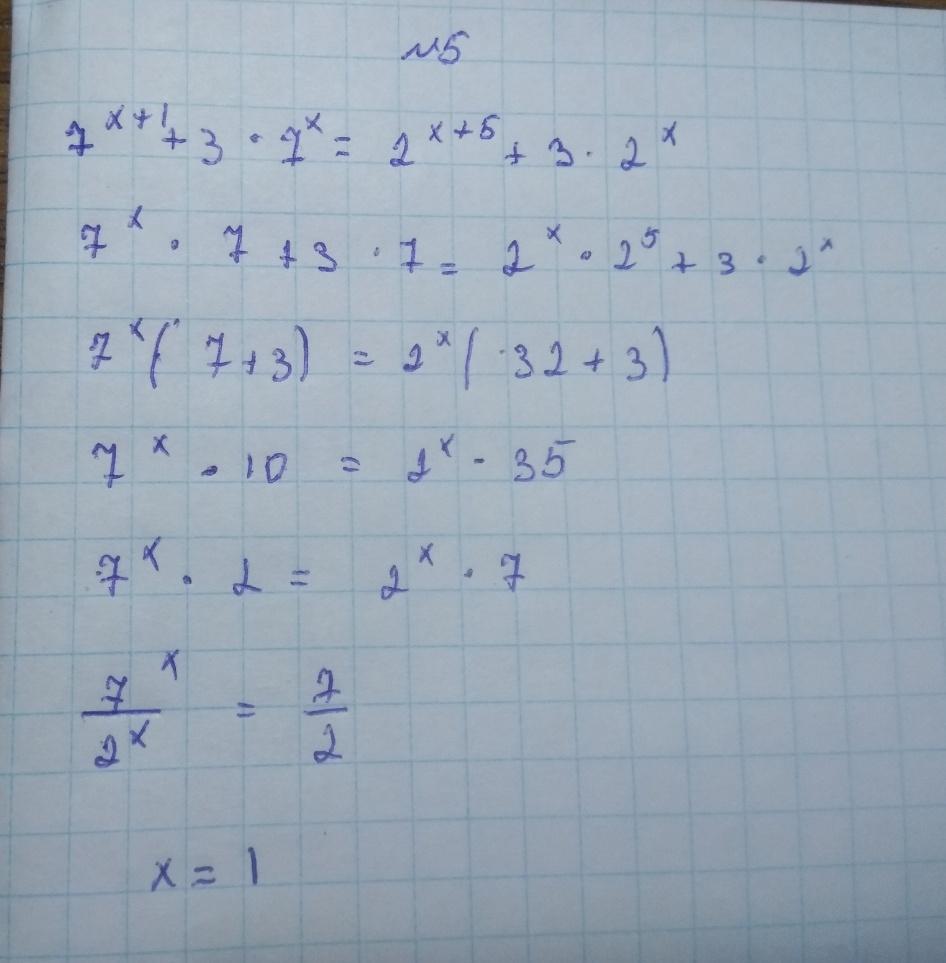 №5
7^{x+1} + 3 · 7^x = 2^{x+5} + 3 · 2^x
7^x · 7 + 3 · 7 = 2^x · 2^5 + 3 · 2^x
7^x ( 7 + 3) = 2^x ( 32 + 3)
7^x · 10 = 2^x · 35
7^x · 2 = 2^x · 7
\frac{7^x}{2^x} = \frac{7}{2}
x = 1